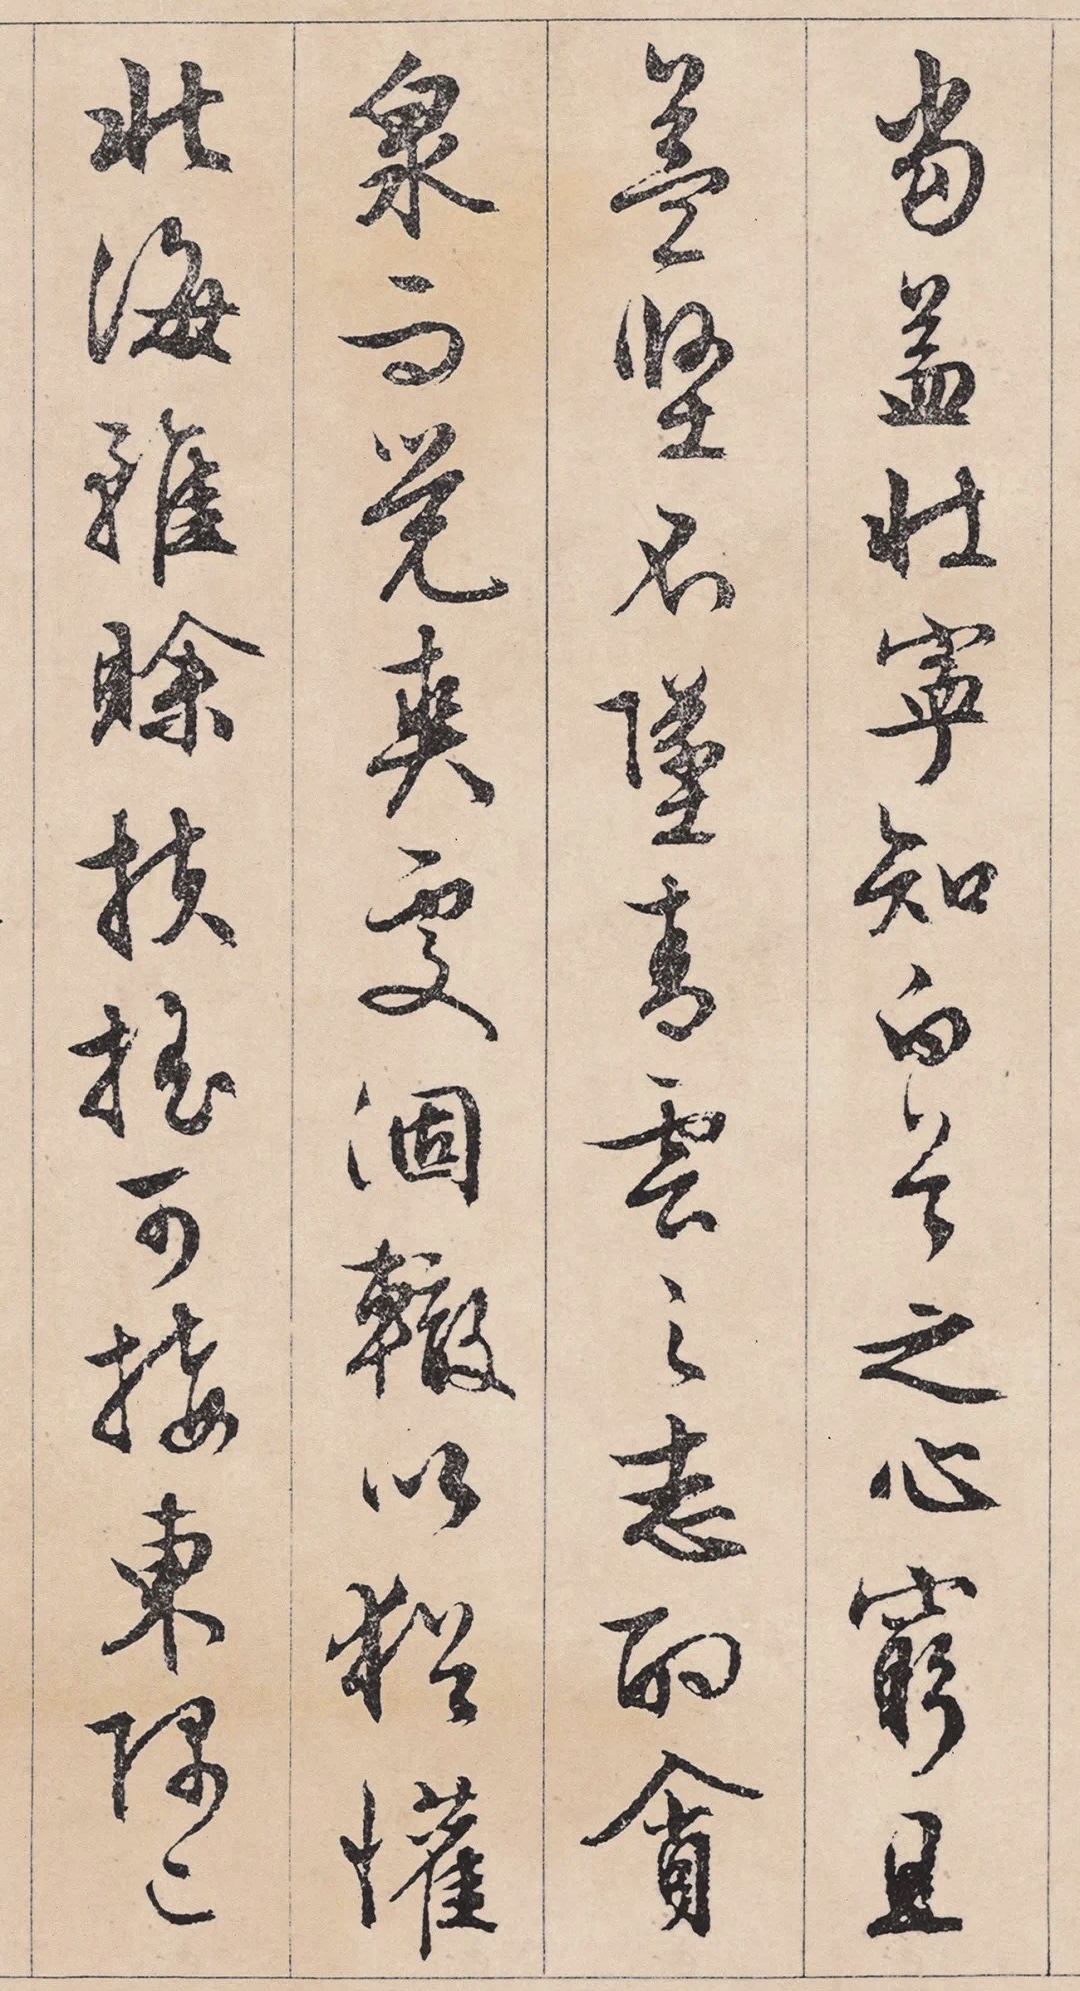 當益壯寧知白首之心窮且
益堅不墜青雲之志酌貪
泉而覺爽處涸轍以猶懽
北海雖賒扶搖可接東隅已